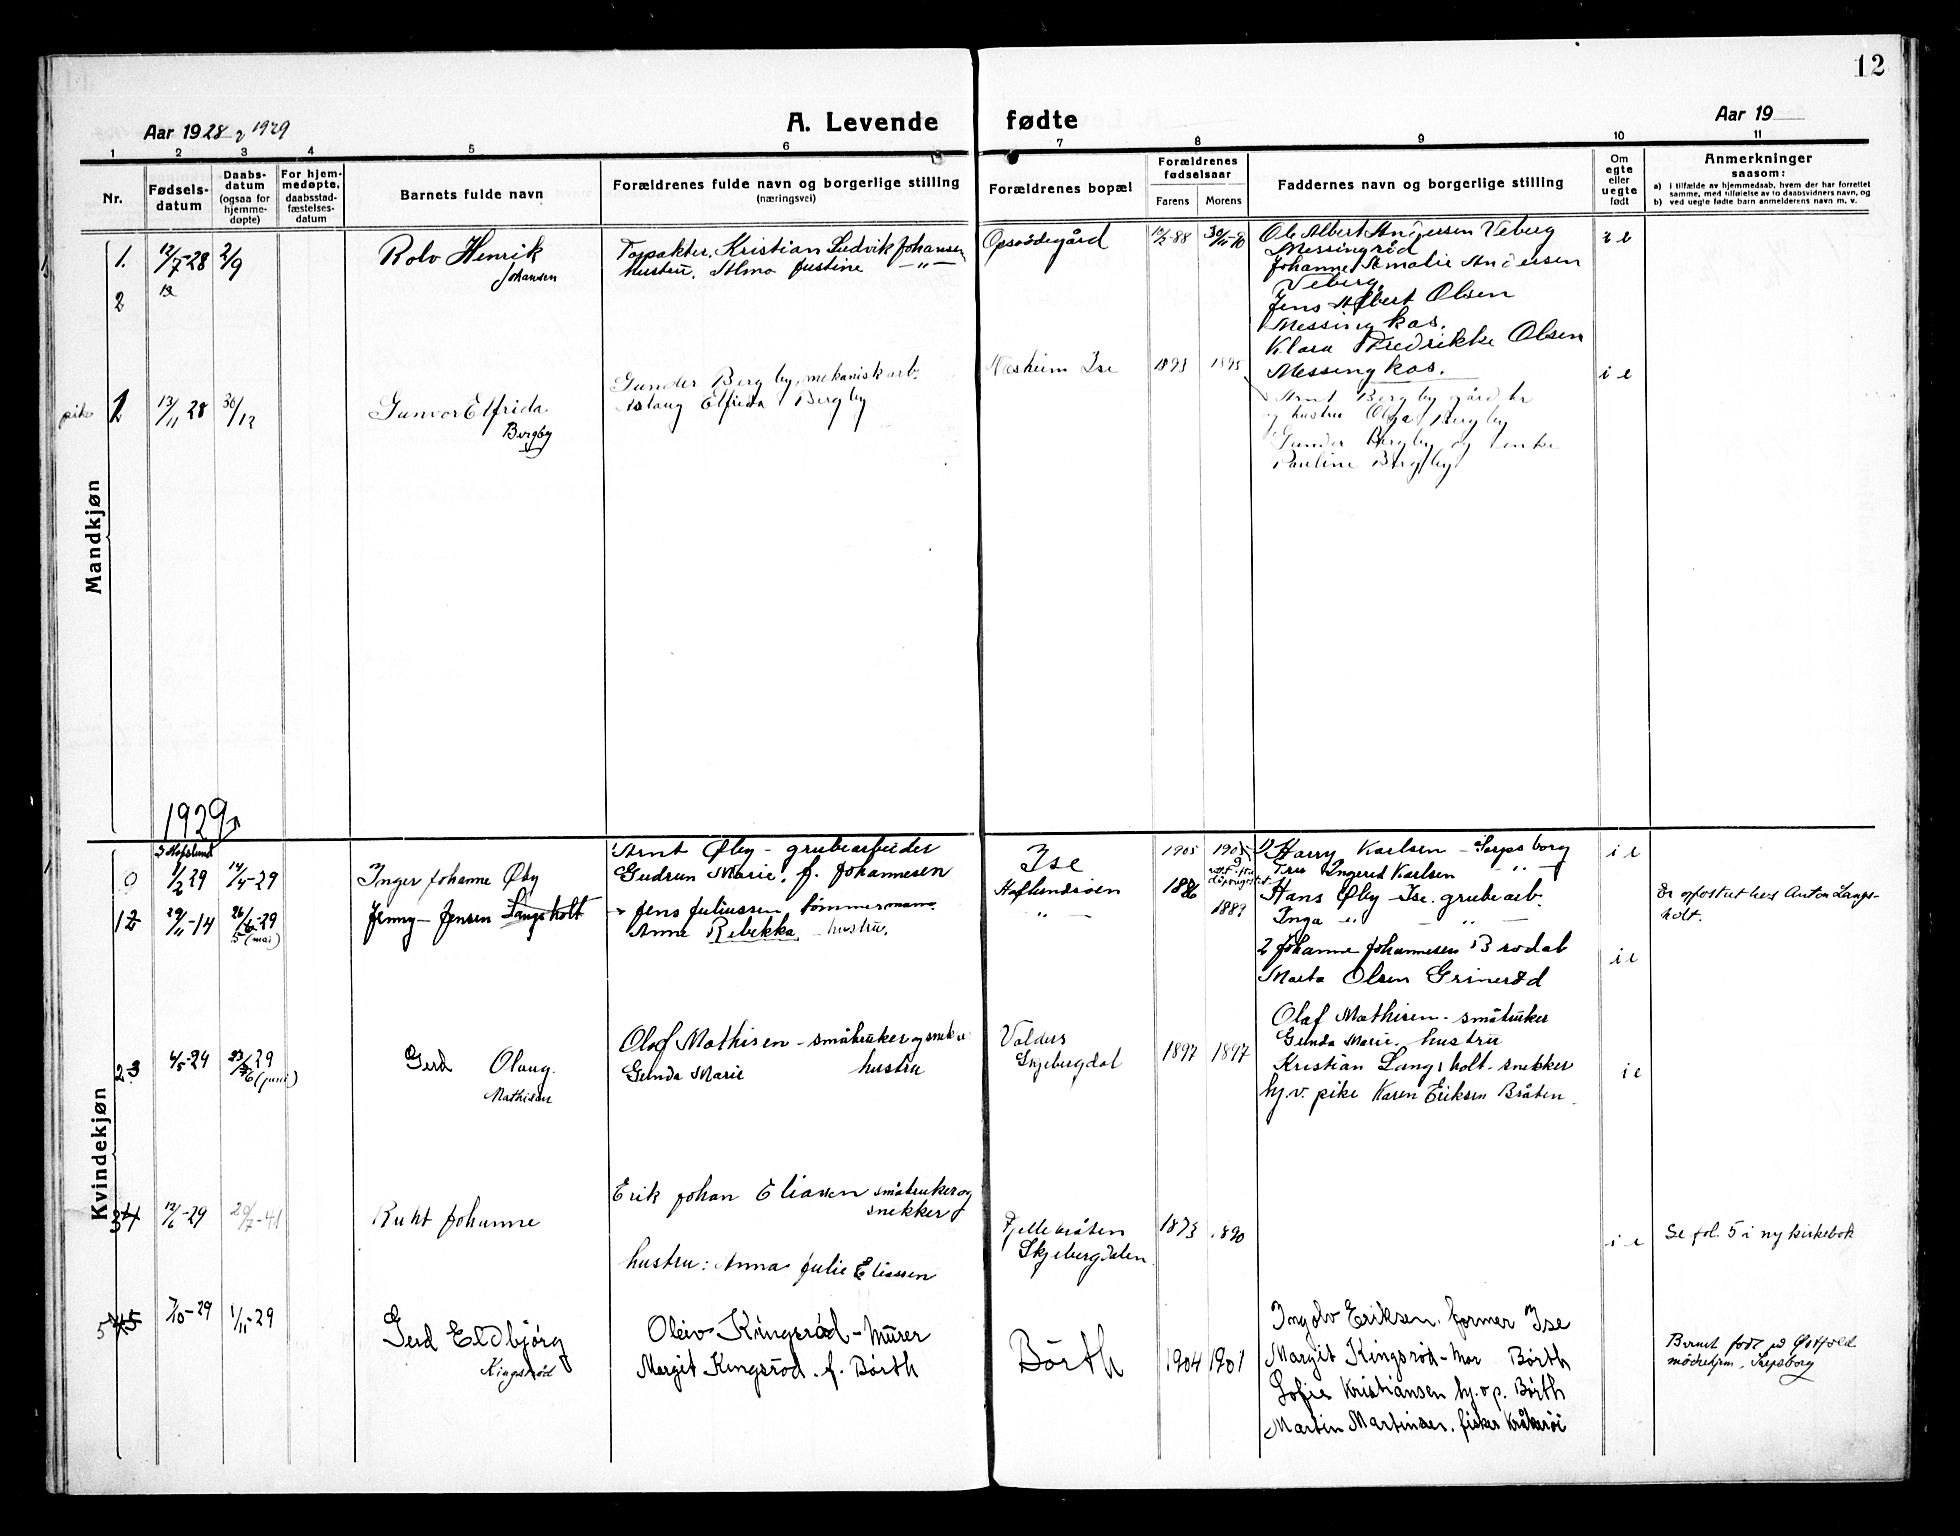 12
Aar 1928 og 1929
A. Levende fødte
Aar 19
1 2 3 4 5 6 7 8 9 10 11
Nr.
Fødsels-
datum
Daabs-
datum
(ogsaa for
hjemme-
døpte)
For hjem-
medøpte,
daabsstad-
fæstelses-
datum
Barnets fulde navn
Forældrenes fulde navn og borgerlige stilling
(næringsvei)
Forældrenes bopæl
Forældrenes
fødselsaar
Farens Morens
Faddernes navn og borgerlige stilling
Om
egte
eller
uegte
født
Anmerkninger
saasom:
a) i tilfælde av hjemmedaab, hvem der har forrettet
samme, med tilføielse av to daabsvidners navn, og
b) ved uegte fødte barn anmelderens navn m. v.
Mandkjøn
1. 12/7-28 2/9
Rolv Henrik
Johansen
Kristian Ludvik Johansen
hustru, Alma Justine —"—
Opsødegård
Ole Albert Andersen Veberg
Messingråd
Johanne Amalie Andersen
Veberg
Jens Albert Olsen
Messingkas.
Klara Fredrikke Olsen
Messingkas.
2
pike 1 13/11 28 30/12
Gunvor Elfrida
Bergby
Gunder Bergby, mekanisk arb.
Aslaug Elfrida Bergby
Næsheim Ise
1893 1895
Arnt Bergby gårdbr
og hustru Olga Bergby
Gunder Bergby og enke
Pauline Bergby
i e
1929
Kvindekjøn
Hafslund
1/2 29 14/4-29
Inger Johanne Øby
Arnt Øby - grubearbeider
Gudrun Marie, f. Johannesen
Ise
1905
2 Harry Karlsen - Sarpsborg
Fru Ingerid Karlsen " —
Hans Øby - Ise. grubearb.
Inga " — " —
i e
12 29/11-14 26/6-29
5 (mai)
Jenny - Jensen Langsholt
Jens Juliussen tømmermann
Anne Rebekka - hustru.
Haflundsøen
1886 1889
2 Johanne Johannesen Brodal
Marta Olsen Grinerød
i e
Er opfostret hos Anton Langs-
holt.
23 4/5-29 23/6 29
(juni)
Gerd Olaug.
Mathisen
Olaf Mathisen - småbruker og snekker
Gunda Marie hustru
Valders
Skjebergdal
1897 1897
Olaf Mathisen - småbruker
Gunda Marie. hustru
Kristian Langsholt - snekker
hj.v. pike Karen Eriksen Bråten.
i e
34 12/6-29 20/7-41
Ruht Johanne
Erik Johan Eliassen småbruker og
snekker
hustru: Anna Julie Eliassen
Fjellbråten
Skjebergdalen
1873 1890
i e
Se fol. 5 i ny kirkebok
5 7/10-29 1/11-29
Gerd Eldbjörg
Kingsrød
Oleiv Kingsrød - Murer
Margit Kingsrød. f. Börth
Börth
1904 1901
Ingolv Eriksen. former Ise
Margit Kingsrød - Mor Börth
Sofie Kristiansen hj.v.p. Börth
Martin Martinsen. fisker Kråkerøi
Barnet født på Østfold
mødrehjem, Sarpsborg